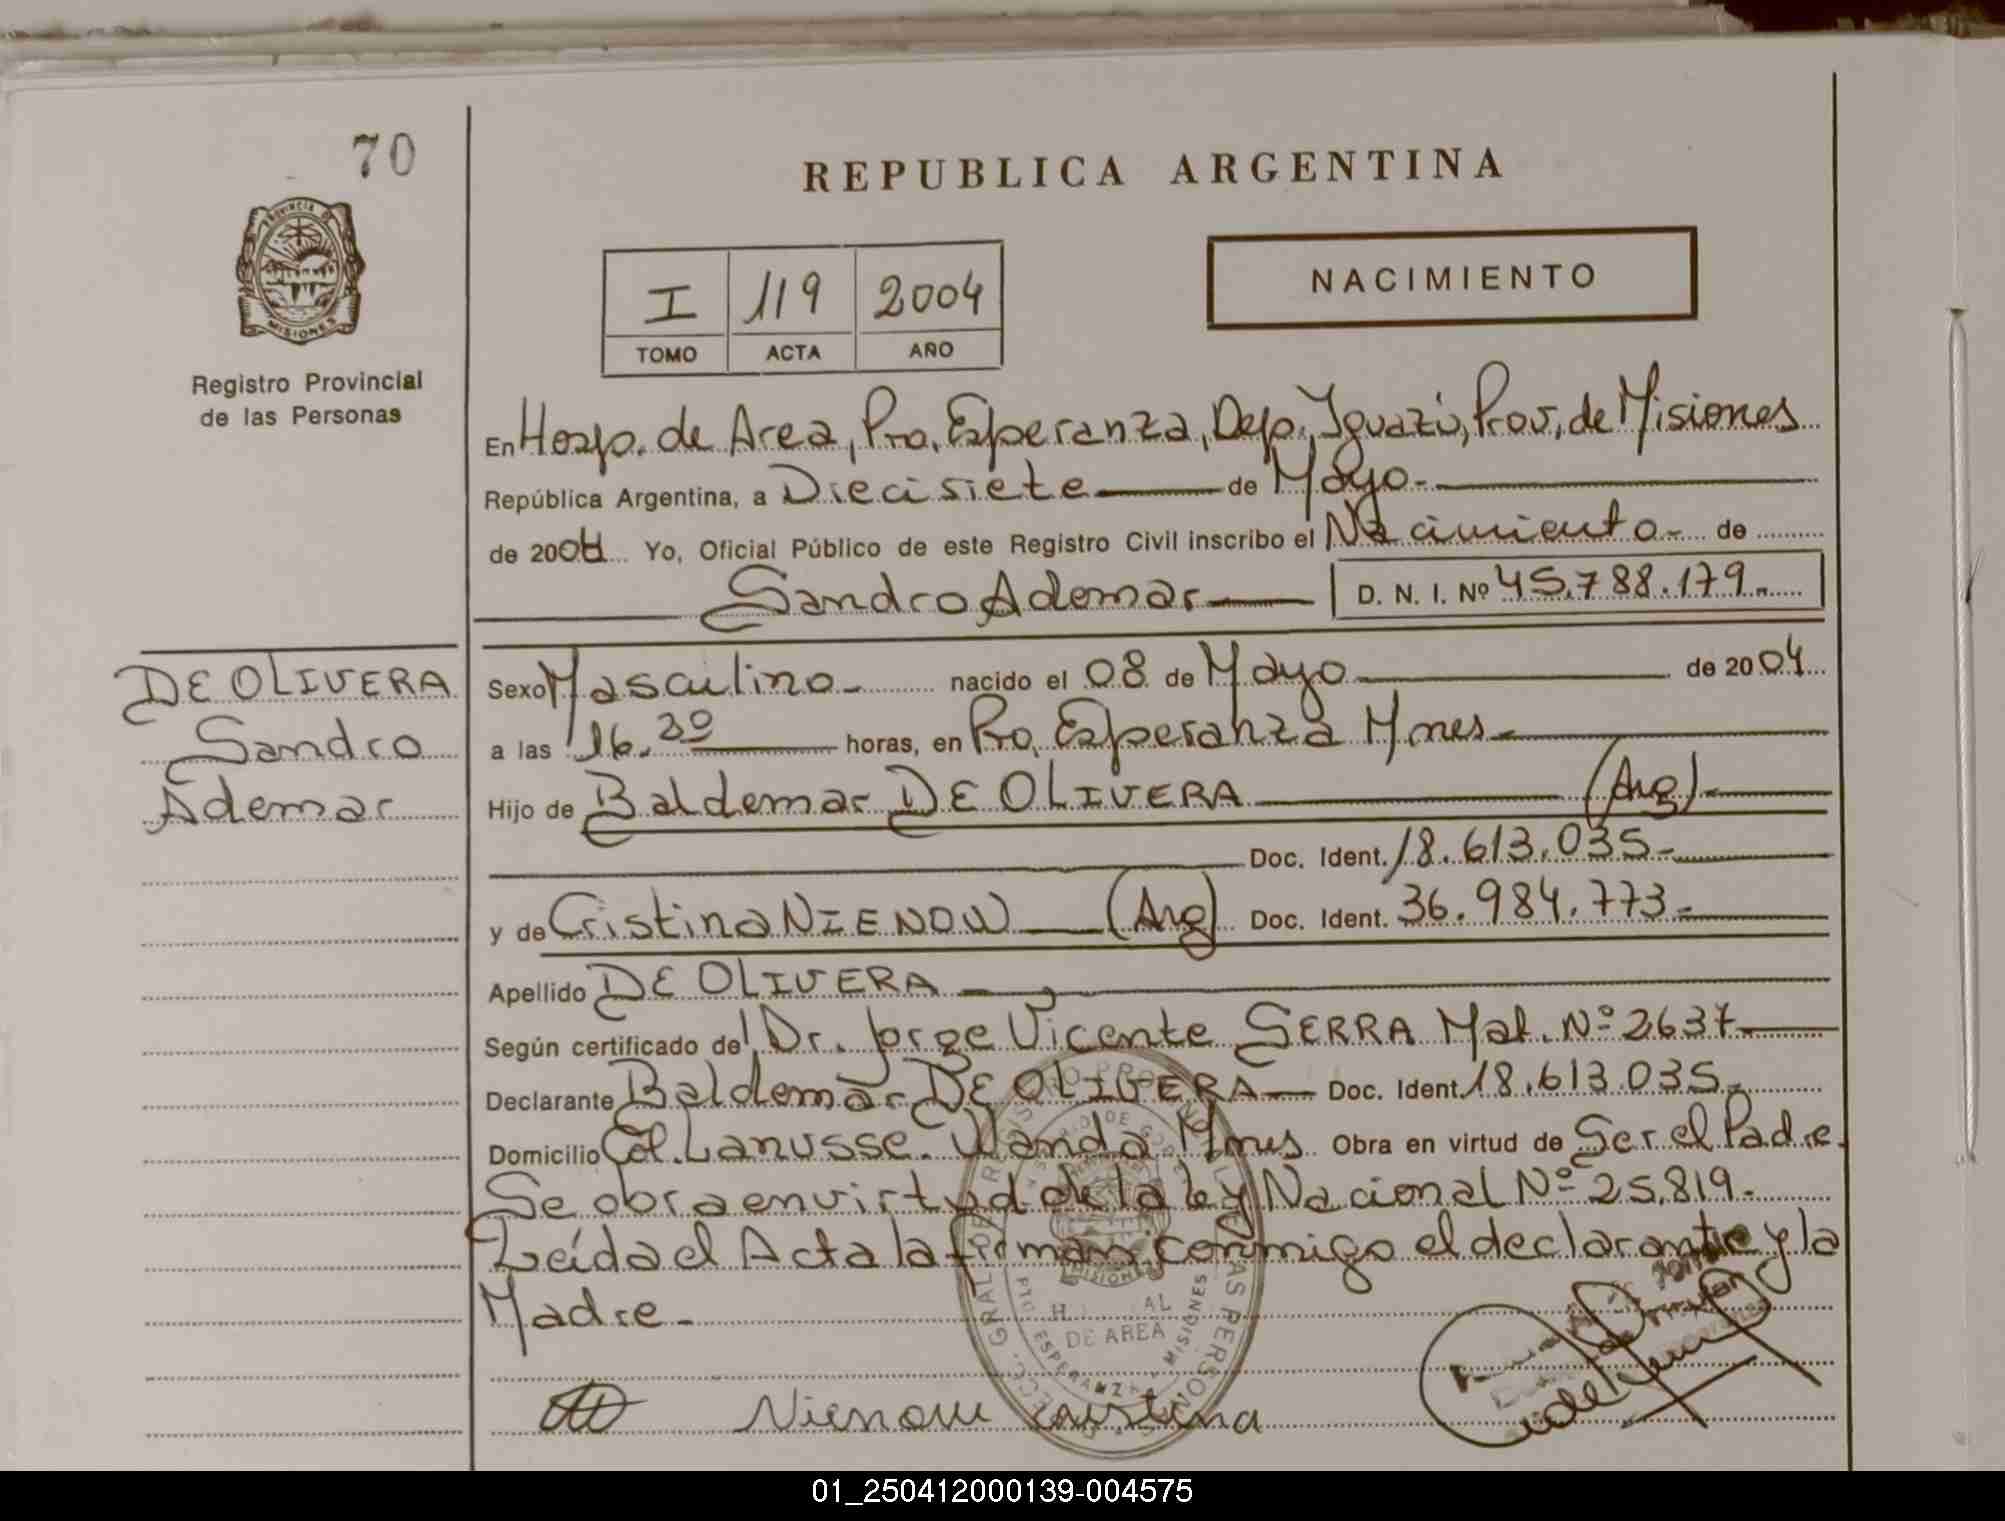 70
REPUBLICA ARGENTINA
PROVINCIA DE
MISIONES
Registro Provincial
de las Personas
I 119 2004
TOMO ACTA AÑO
NACIMIENTO
En Hosp. de Area, Pto. Esperanza, Dep. Iguazú, Prov. de Misiones
República Argentina, a Diecisiete de Mayo.-
de 2004 Yo, Oficial Público de este Registro Civil inscribo el Nacimiento.- de
Sandro Ademar D. N. I. Nº 45.788.179.-
DE OLIVERA
Sandro
Ademar
Sexo Masculino.- nacido el 08 de Mayo de 2004
a las 16.30 horas, en Pto. Esperanza Mnes.-
Hijo de Baldemar DE OLIVERA (Arg).-
Doc. Ident. 18.613.035.-
y de Cristina NIENOW (Arg) Doc. Ident. 36.984.773.-
Apellido DE OLIVERA
Según certificado de Dr. Jorge Vicente SERRA Mat. Nº 2637.-
Declarante Baldemar DE OLIVERA Doc. Ident. 18.613.035.-
Domicilio Col. Lanusse. Wanda Mnes Obra en virtud de Ser el Padre.
Se obra en virtud de la Ley Nacional Nº 25.819.-
Leída el Acta la firman conmigo el declarante y la
Madre.-
DE AREA
ESPERANZA - MISIONES
Nienow Cristina
01_250412000139-004575